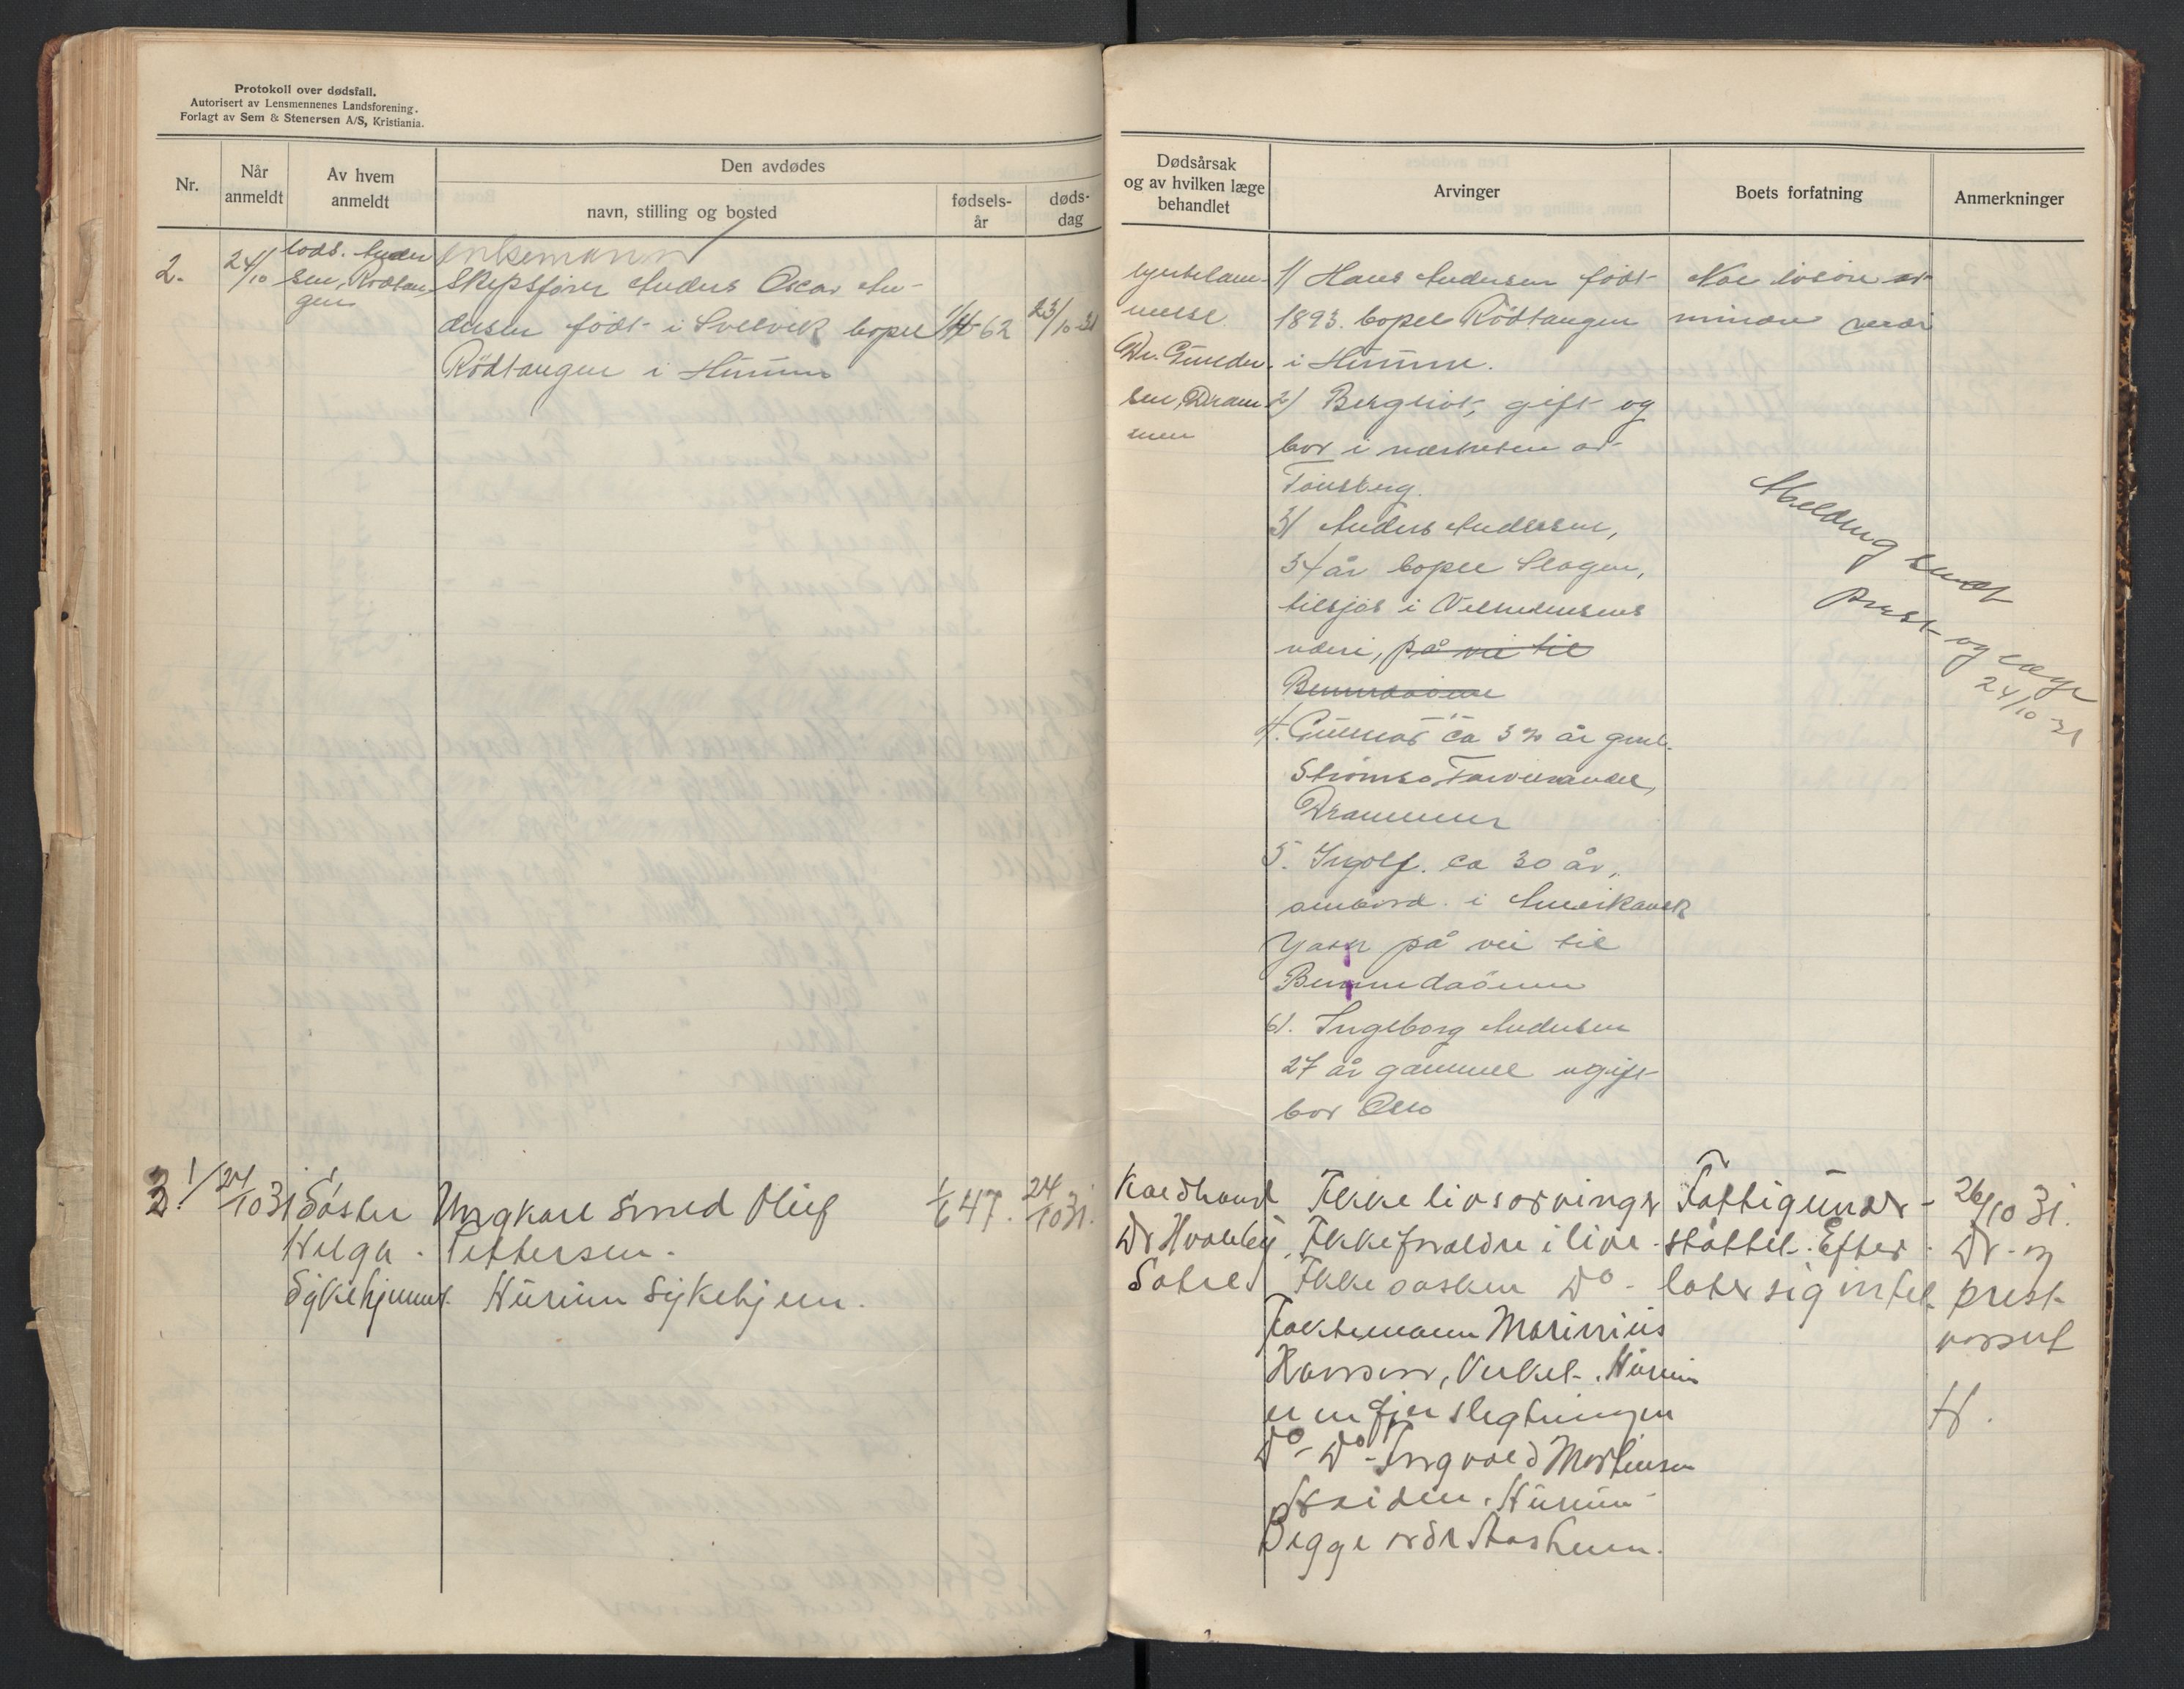 Protokoll over dødsfall.
Autorisert av Lensmennenes Landsforening.
Forlagt av Sem & Stenersen A/S, Kristiania.
Nr.
Når anmeldt
Av hvem anmeldt
Den avdødes
navn, stilling og bosted
fødsels-år
døds-dag
2.
24/10
lods. Ander
sen, Rødtan
gen
enkemann
Skipsfører Anders Oscar An-
dersen født i Svelvik bopel
Rödtangen i Hurum
62
23/10-31
3
24/10 31
Söster
Helga
Sykehjemmet
Ungkarl Smed Oluf
Pettersen.
Hurum Sykehjem.
1/6 47.
24/10 31.
Dødsårsak
og av hvilken læge
behandlet
Arvinger
Boets forfatning
Anmerkninger
hjertelam-
melse
Dr. Gunder
sen, Dram
men
1/ Hans Andersen født
1893. bopel Rödtangen
i Hurum.
2/ Bergliot, gift og
bor i nærheten av
Tønsberg.
3/ Anders Andersen,
34 år bopel Slagen,
tilsjös i Vilhelmsens
rederi, på vei til
Bermudaöene
4. Gunnar ca 32 år gml.
Strømsø
Drammen
5. Ingolf. ca 30 år,
ombord i Amerikansk
Yacht på vei til
Bermudaöene
6/. Ingeborg Andersen
27 år gammel ugift
bor Oslo
Noe lösöre av
mindre verdi
Melding sendt
Prest og læge
24/10 31
Koldbrand
Dr Hvalbey
Sætre
Ikke livsarvinger
Ikke foreldre i live.
Ikke søsken Do -
Marinius
Hansen, Verket. Hurum
er en fjern slegtningen
Do - Do - Ingvald Martinsen
Hurum
Begge
Fattigunder-
støttet. Efter
later sig intet.
26/10 31.
Dr. og
prest
varslet
H.